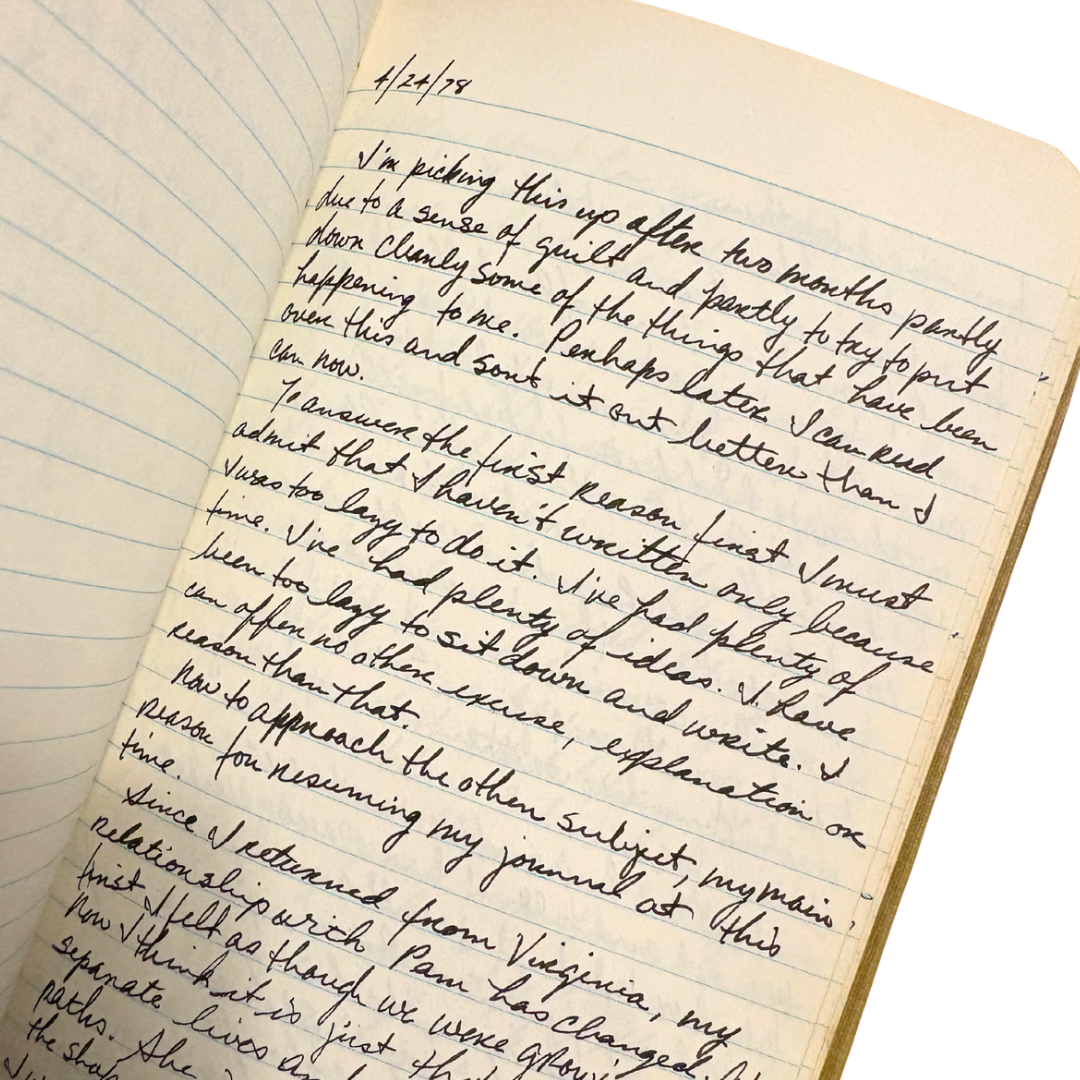 4/24/78
I'm picking this up after two months partly
due to a sense of guilt and partly to try to put
down clearly some of the things that have been
happening to me. Perhaps later I can read
over this and sort it out better than I
can now.
To answer the first reason first I must
admit that I haven't written only because
I was too lazy to do it. I've had plenty of
time. I've had plenty of ideas. I have
been too lazy to sit down and write. I
can offer no other excuse, explanation or
reason than that.
Now to approach the other subject, my main
reason for resuming my journal at this
time.
Since I returned from Virginia, my
relationship with Pam has changed.
first I felt as though we were
Now I think it is just
separate lives
paths. She
the